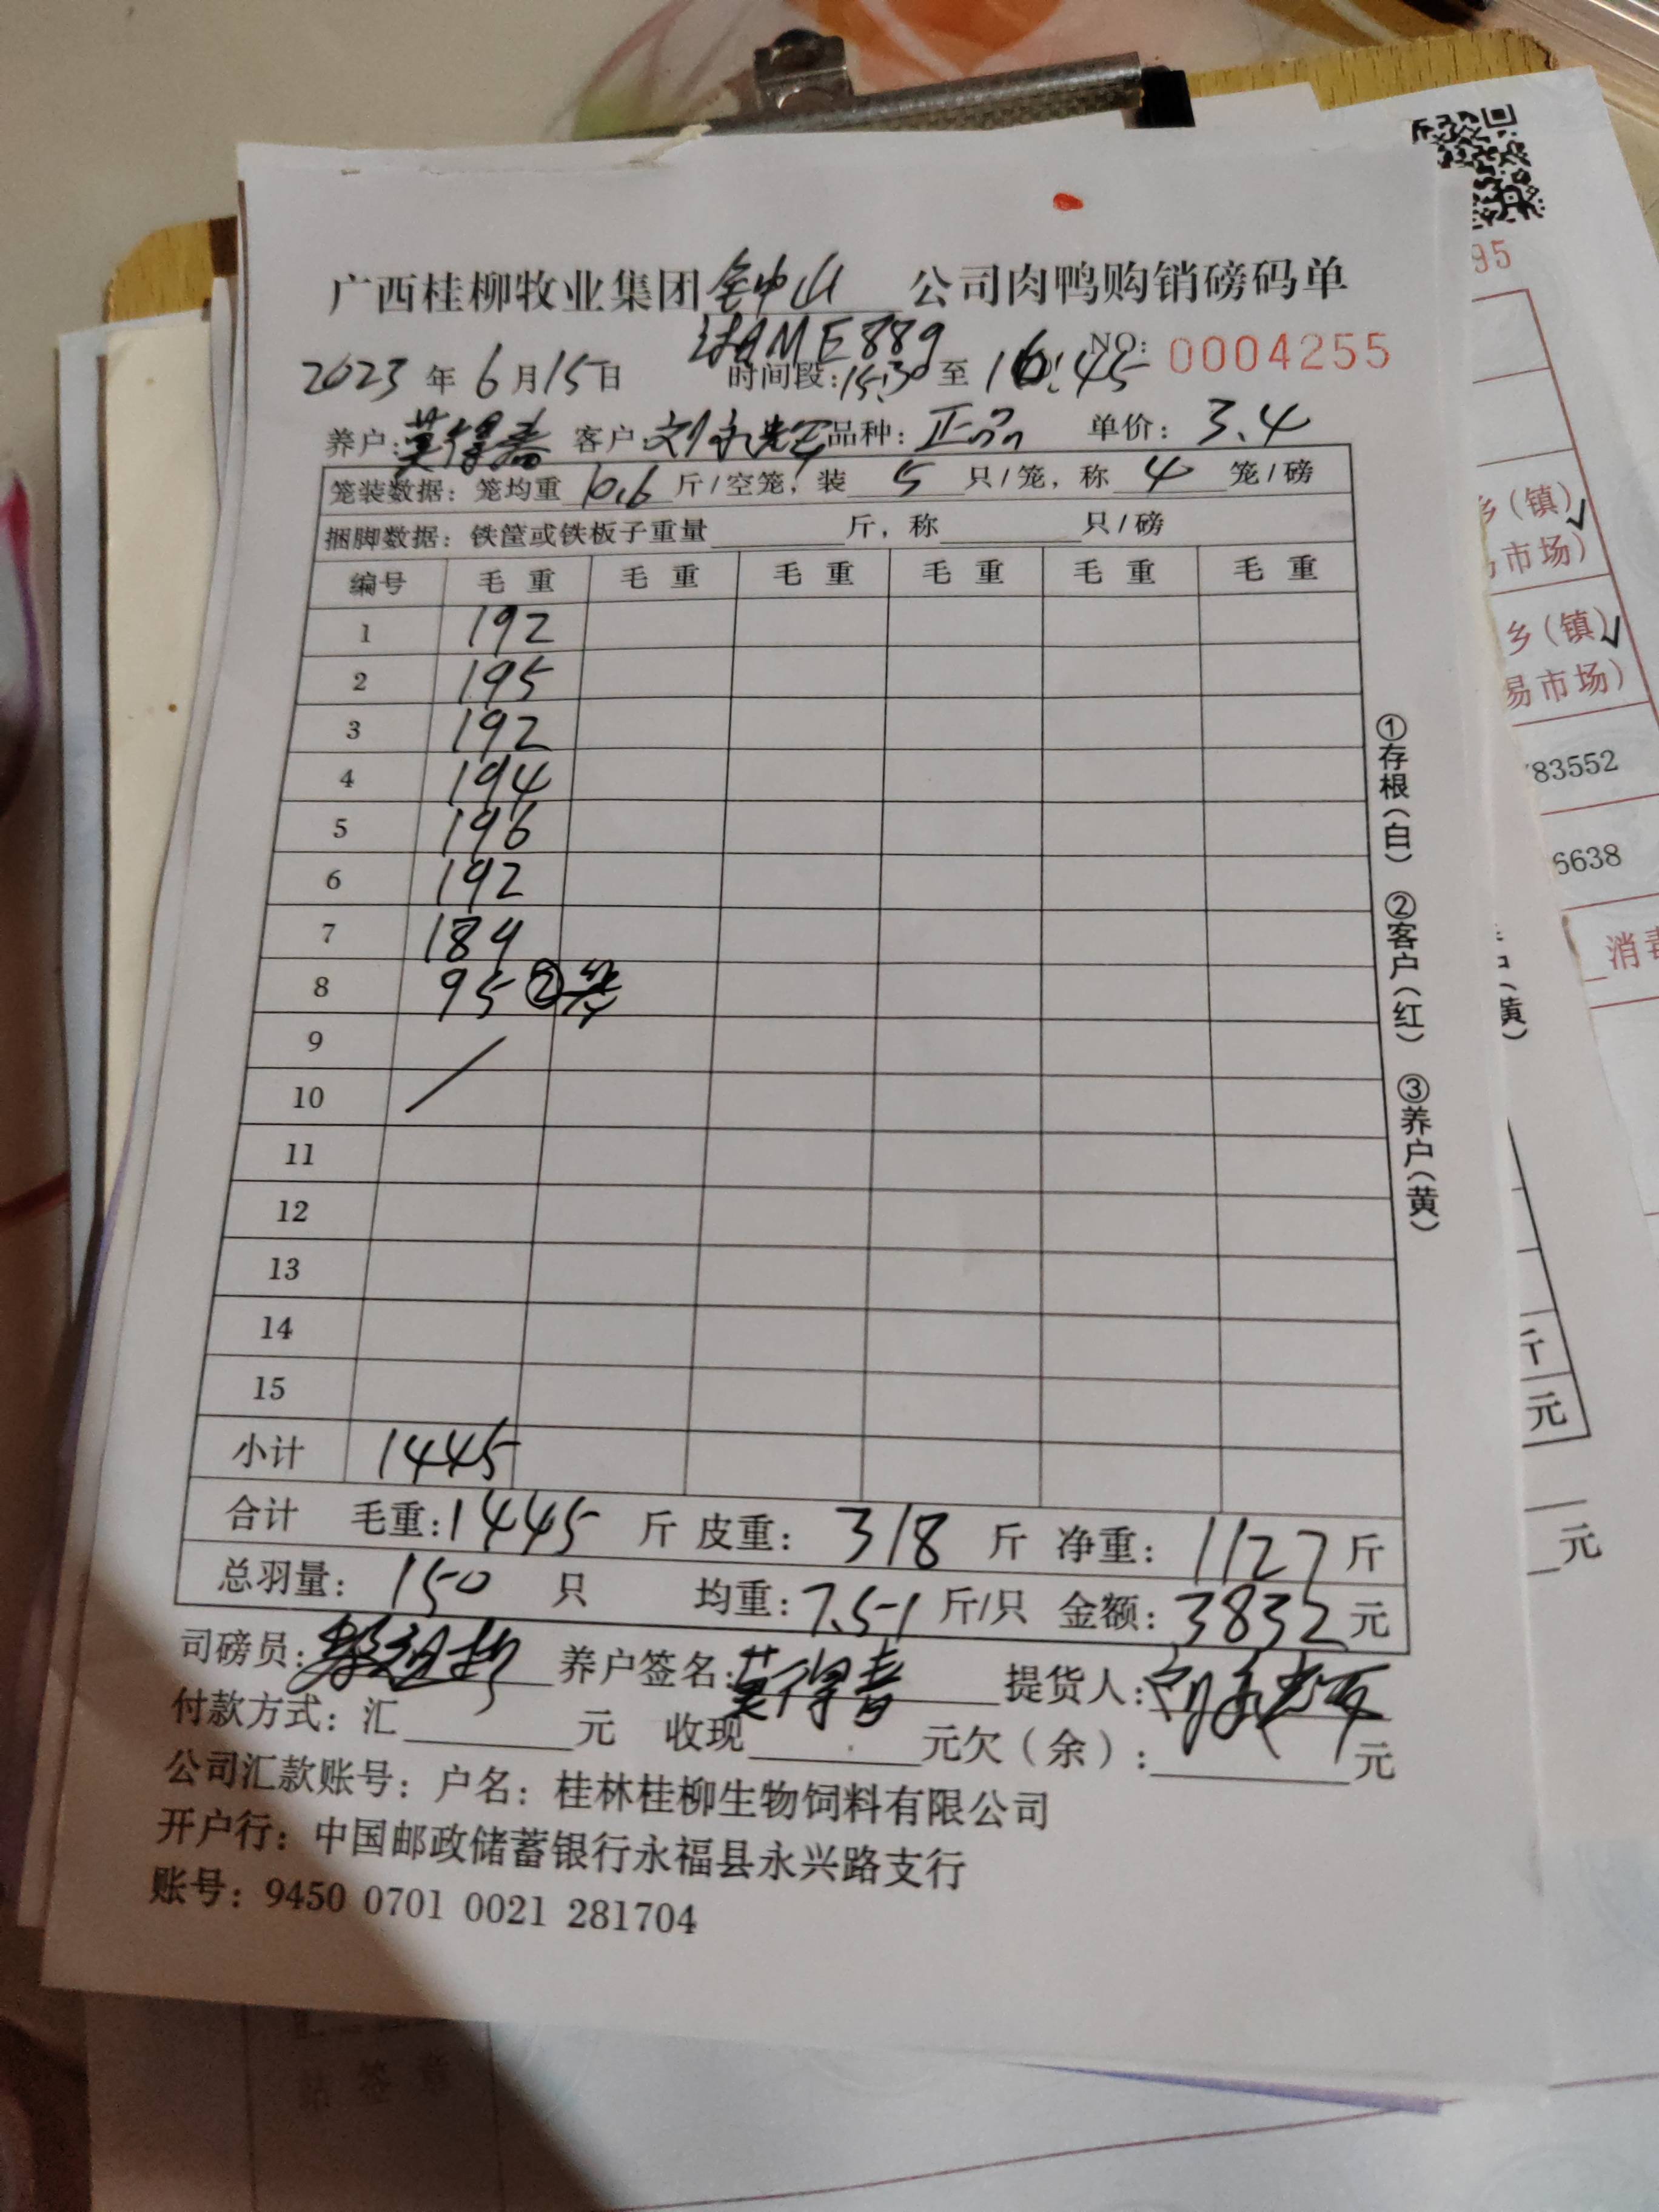 广西桂柳牧业集团钟山公司肉鸭购销磅码单
AME889
NO: 0004255
2023年6月15日 时间段:15:30至16:45
养户: 莫得 客户: 刘 品种: 正品 单价: 3.4
笼装数据: 笼均重 10.6 斤/空笼, 装 5 只/笼, 称 4 笼/磅
捆脚数据: 铁筐或铁板子重量 斤, 称 只/磅
编号 毛重 毛重 毛重 毛重 毛重 毛重
1 192
2 195
3 192
4 194
5 196
6 192
7 189
8 95 ②笼
9
10
11
12
13
14
15
小计 1445
合计 毛重: 1445 斤 皮重: 318 斤 净重: 1127 斤
总羽量: 150 只 均重: 7.51 斤/只 金额: 3832 元
司磅员: 养户签名: 莫得 提货人:
付款方式: 汇 元 收现 元欠(余): 元
公司汇款账号: 户名: 桂林桂柳生物饲料有限公司
开户行: 中国邮政储蓄银行永福县永兴路支行
账号: 9450 0701 0021 281704
①存根(白) ②客户(红) ③养户(黄)
95
乡(镇)
市场)
乡(镇)
易市场)
83552
6638
消毒
(黄)
斤
元
元